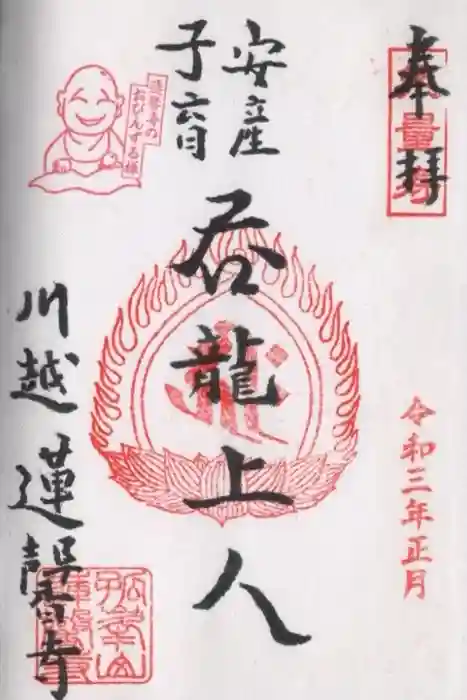 奉拝
無量壽
令和三年正月
安産
子育
呑龍上人
蓮馨寺の
おびんずる様
川越
蓮馨寺
孤峯山
蓮馨寺